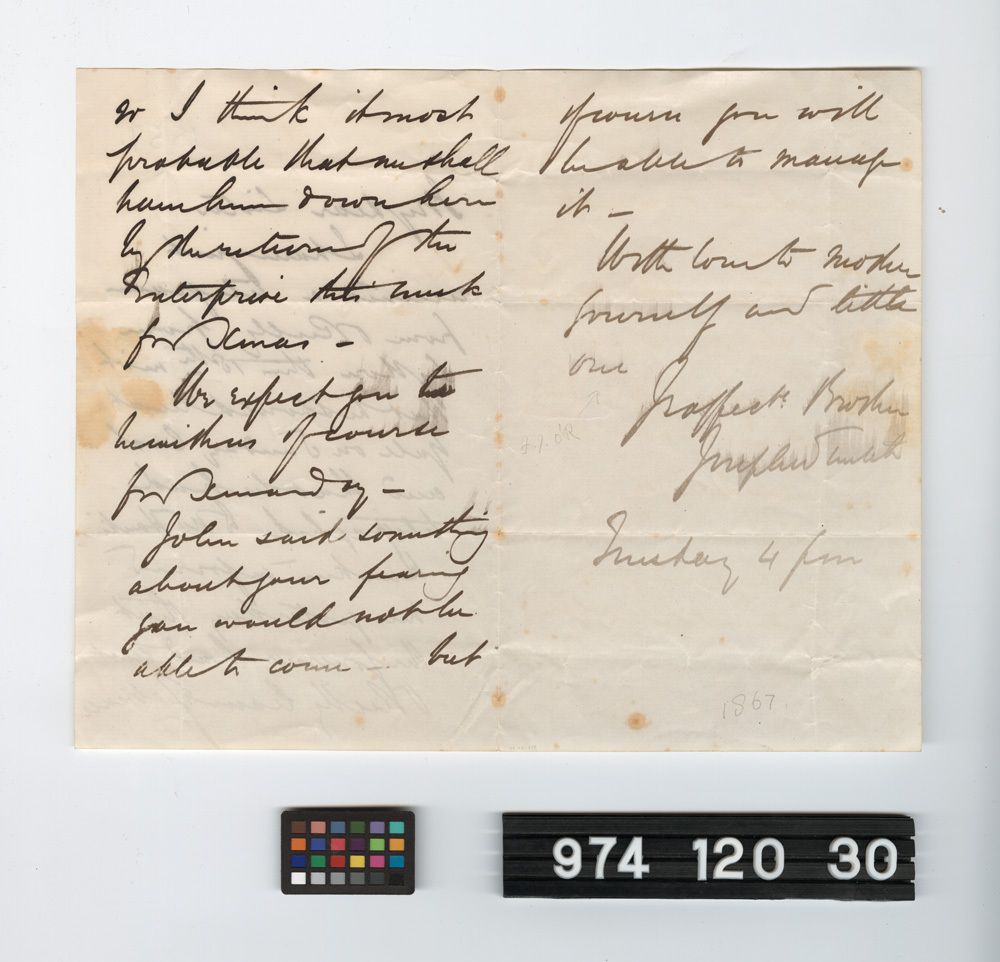 so I think it most
probable that we shall
have him down here
by the return of the
Enterprise this week
for Xmas -
We expect you to
be with us of course
for Xmas day -
John said something
about your fearing
you would not be
able to come - but
of course you will
be able to manage
it -
With love to Mother
yourself and little
one
Yr affect. Brother
Joseph
Tuesday 4 pm
1867.
974 120 30